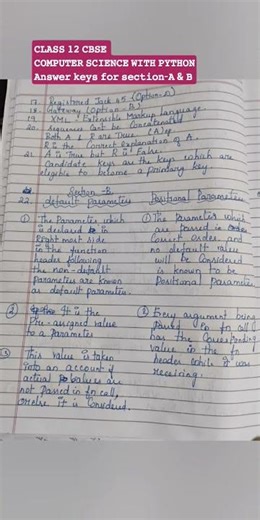 CLASS 12 CBSE
COMPUTER SCIENCE WITH PYTHON
Answer keys for section-A & B
17. Registered Jack 45 (Option-A)
18. Gateway (Option-B)
19. XML - Extensible Markup Language.
20. Sequences Can't be Concatenated
Both A & R are True. (A) or
R is the Correct Explanation of A.
21. A is True but R is False.
Candidate keys are the keys which are
eligible to become a primary key
Section-B
22. Default Parameter
① The Parameter which
is declared in
Right most side
in the function
header following
the non-default
Parameter are known
as default parameter.
② It is the
Pre-assigned value
to a Parameter
③ This value is taken
into an account if
actual values are
not passed in fn call,
orelse it is Considered.
Positional Parameter
① The Parameter which
are passed in
Correct order and
no default value
will be Considered
is known to be
Positional parameter
② Every argument being
passed in fn call
has the Corresponding
value in the fn
header while it was
receiving.